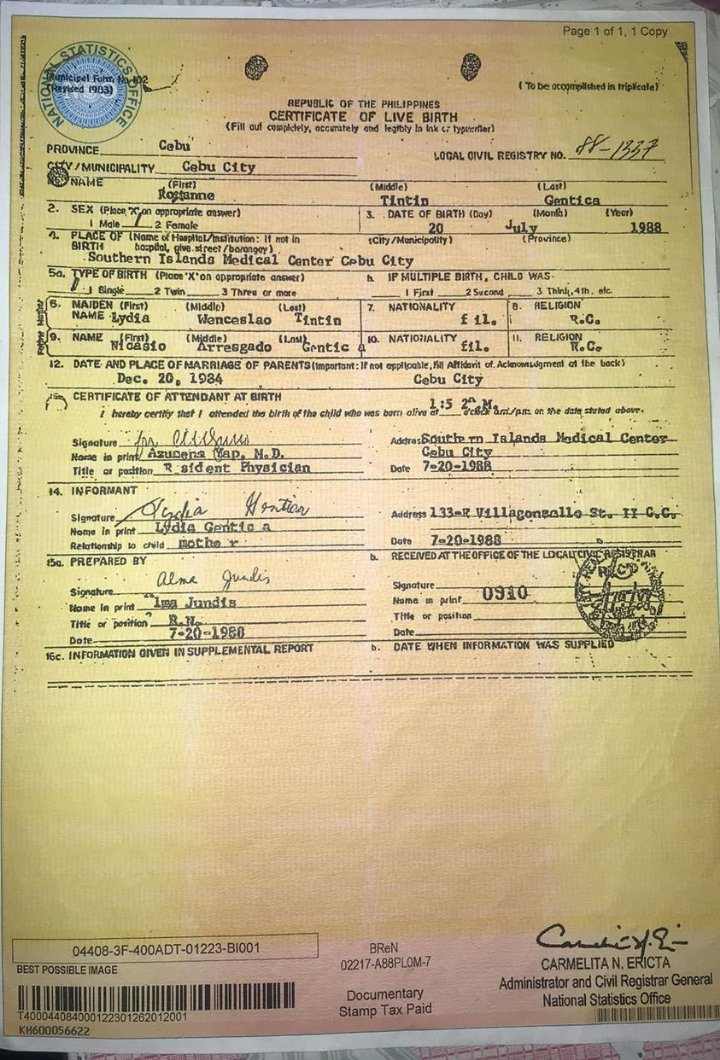 Page 1 of 1, 1 Copy
NATIONAL STATISTICS OFFICE
Municipal Form No. 102
(Revised 1983)
( To be accomplished in triplicate)
REPUBLIC OF THE PHILIPPINES
CERTIFICATE OF LIVE BIRTH
(Fill out completely, accurately and legibly in ink or typewriter)
PROVINCE Cebu
LOCAL CIVIL REGISTRY NO. 88-1337
CITY/MUNICIPALITY Cebu City
NAME (First) (Middle) (Last)
Tintin Gentica
2. SEX (Place 'X' on appropriate answer) 3. DATE OF BIRTH (Day) (Month) (Year)
1 Male 2 Female 20 July 1988
4. PLACE OF BIRTH (Name of Hospital/Institution: If not in hospital, give street/barangay) (City/Municipality) (Province)
Southern Islands Medical Center Cebu City
5a. TYPE OF BIRTH (Place 'X' on appropriate answer) b. IF MULTIPLE BIRTH, CHILD WAS
1 Single 2 Twin 3 Three or more 1 First 2 Second 3 Third, 4th, etc.
6. MAIDEN NAME (First) (Middle) (Last) 7. NATIONALITY 8. RELIGION
Lydia Wenceslao Tintin fil. R.C.
9. NAME (First) (Middle) (Last) 10. NATIONALITY 11. RELIGION
Nicasio Arresgado Gentic a fil. R.C.
12. DATE AND PLACE OF MARRIAGE OF PARENTS (Important: If not applicable, fill Affidavit of Acknowledgment at the back)
Dec. 20, 1984 Cebu City
CERTIFICATE OF ATTENDANT AT BIRTH
I hereby certify that I attended the birth of the child who was born alive at 1:5 2 o'clock am/pm on the date stated above.
Signature
Address Southe rn Islands Medical Center
Name in print Azucena Yap, M.D.
Cebu City
Title or position R sident Physician
Date 7-20-1988
14. INFORMANT
Signature Lydia Gentica
Address 133-E Villagonzallo St. II C.C.
Name in print Lydia Gentic a
Relationship to child mothe r
Date 7-20-1988
15a. PREPARED BY
b. RECEIVED AT THE OFFICE OF THE LOCAL CIVIL REGISTRAR
Signature Alma Jundis
Signature
Name in print lma Jundis
Name in print 0910
Title or position R.N.
Title or position
Date 7-20-1988
Date
16c. INFORMATION GIVEN IN SUPPLEMENTAL REPORT
b. DATE WHEN INFORMATION WAS SUPPLIED
04408-3F-400ADT-01223-BI001
BEST POSSIBLE IMAGE
T400044084000122301262012001
KH600056622
BReN
02217-A88PL0M-7
Documentary
Stamp Tax Paid
CARMELITA N. ERICTA
Administrator and Civil Registrar General
National Statistics Office